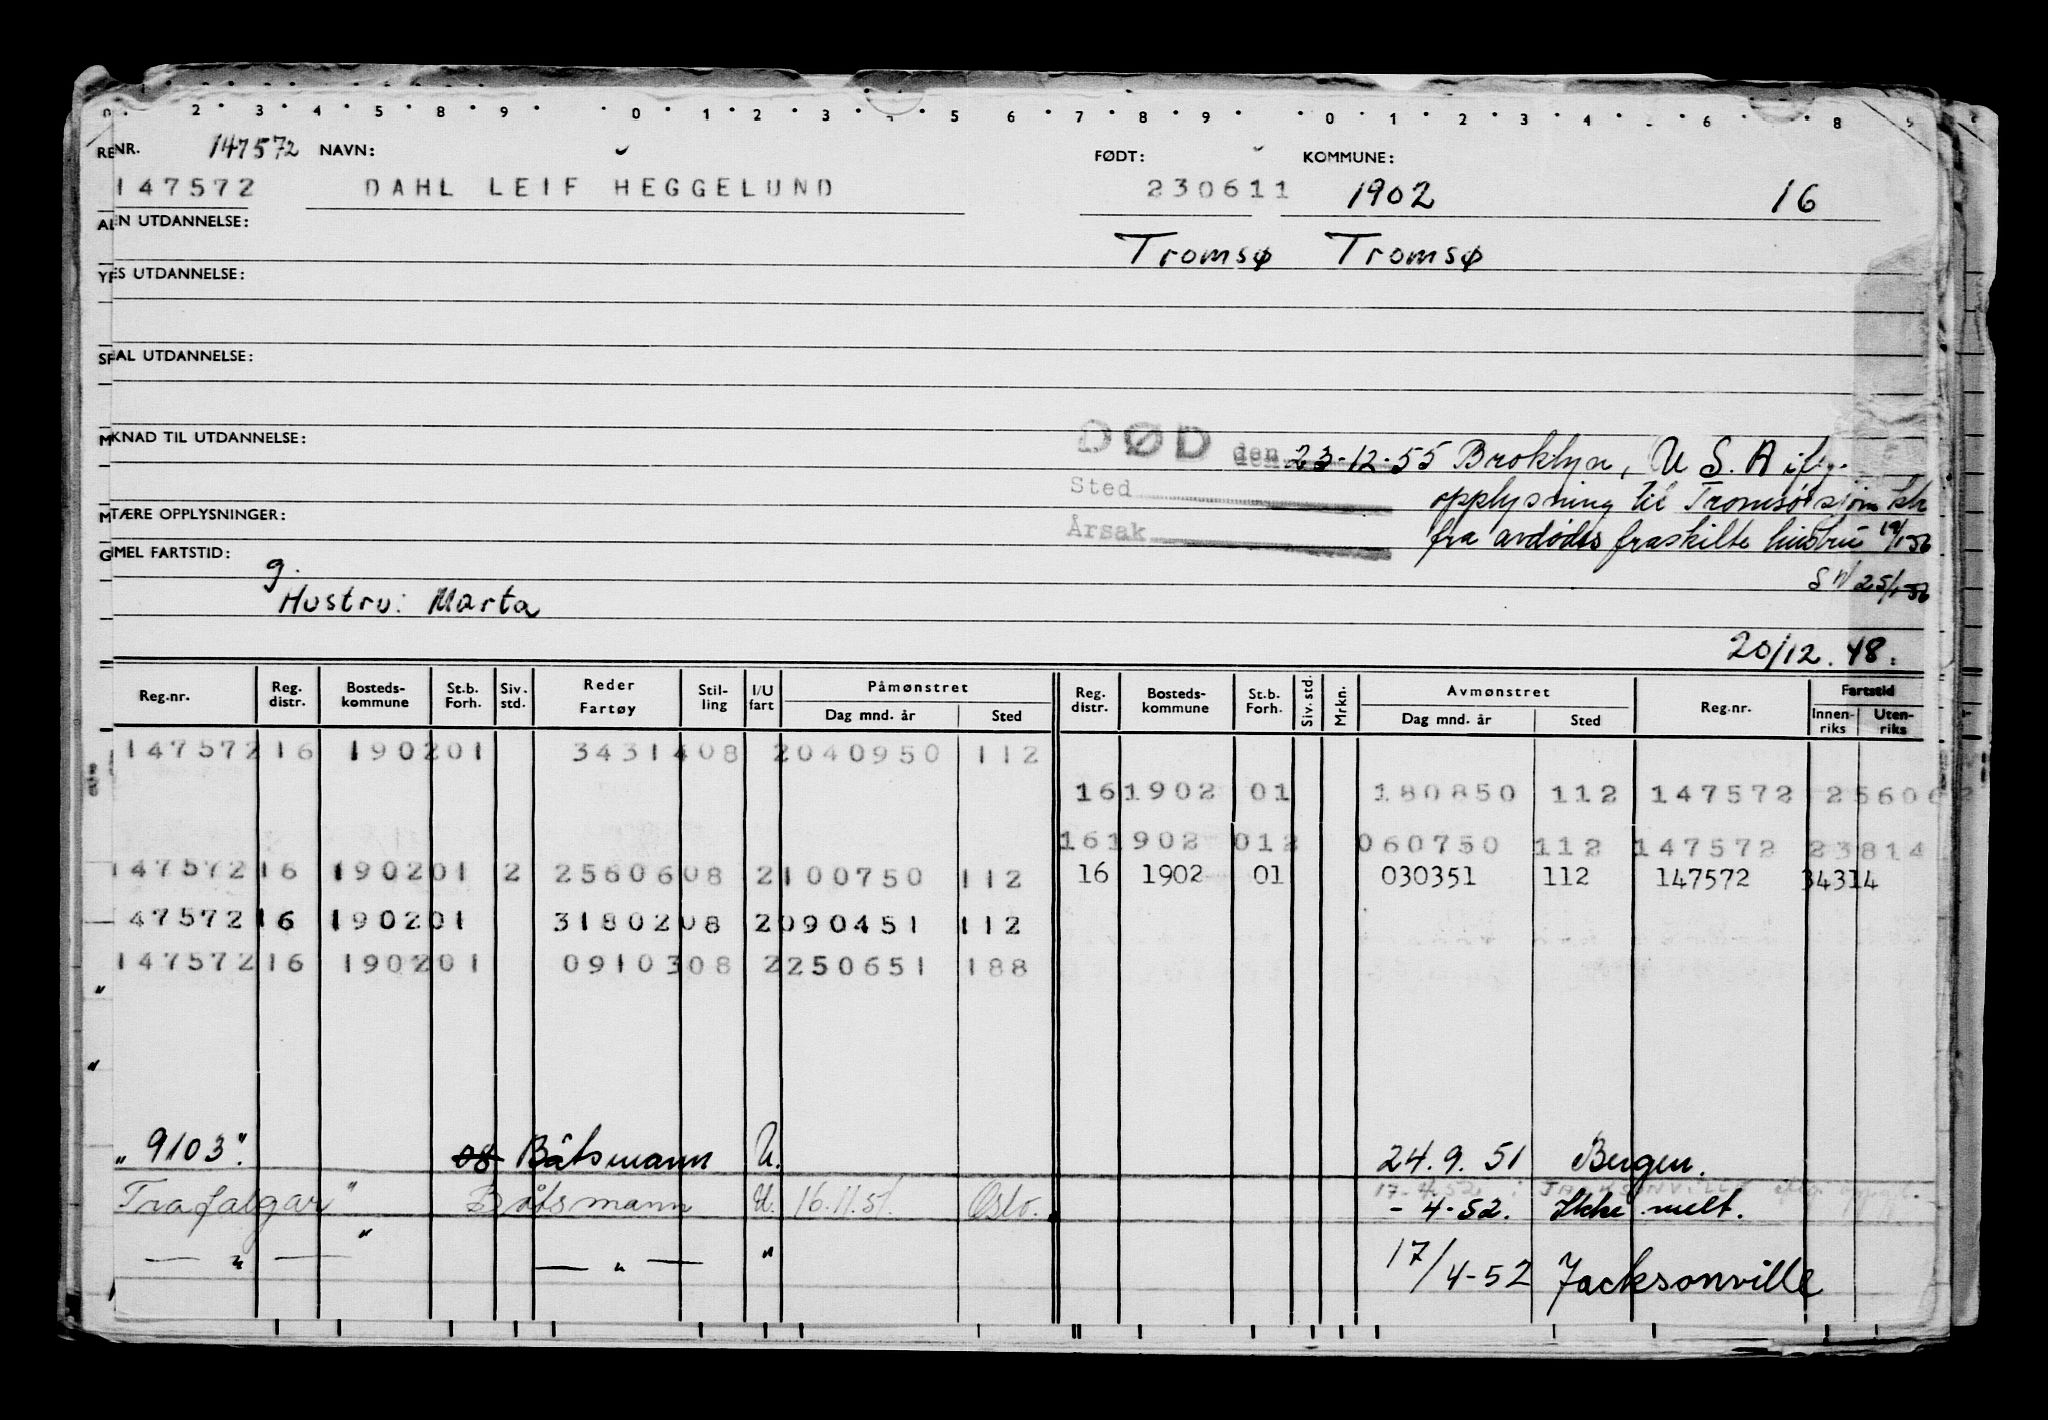 0 . 2 . 3 . 4 . 5 . 8 . 9 . 0 . 1 . 2 . 3 . 4 . 5 . 6 . 7 . 8 . 9 . 0 . 1 . 2 . 3 . 4 . 6 . 8 9
RENR. 147572 NAVN: FØDT: KOMMUNE:
147572 DAHL LEIF HEGGELUND 230611 1902 16
ALEN UTDANNELSE:
Tromsø Tromsø
YRES UTDANNELSE:
SPAL UTDANNELSE:
MKNAD TIL UTDANNELSE:
DØD den 23-12-55 Broklyn, U S.A ifg.
Sted opplysning til Tromsø sjøm.ktr
MTÆRE OPPLYSNINGER:
Årsak fra avdødes fraskilte hustru 19/1 56
GMEL FARTSTID:
g.
SW 25/1-56
Hustru: Marta
20/12.48.
Reg.nr. Reg. distr. Bosteds-kommune St.b. Forh. Siv. std. Reder Fartøy Stil-ling I/U fart Påmønstret Dag mnd. år Sted Reg. distr. Bosteds-kommune St.b. Forh. Siv. std. Mrkn. Avmønstret Dag mnd. år Sted Reg.nr. Fartstid Innen-riks Uten-riks
147572 16 1902 01 34314 08 2 040950 112
16 1902 01 180850 112 147572 25606
16 1902 01 2 060750 112 147572 23814
147572 16 1902 01 2 25606 08 2 100750 112 16 1902 01 030351 112 147572 34314
47572 16 1902 01 31802 08 2 090451 112
147572 16 1902 01 09103 08 2 250651 188
"
"
"9103". 08 Båtsmann U. 24.9.51 Bergen.
17-4.52 i JACKSONVILLE
Trafalgar" Båtsmann U. 16.11.51. Oslo. - 4-52. Ikke melt.
— " — — " — " 17/4-52 Jacksonville